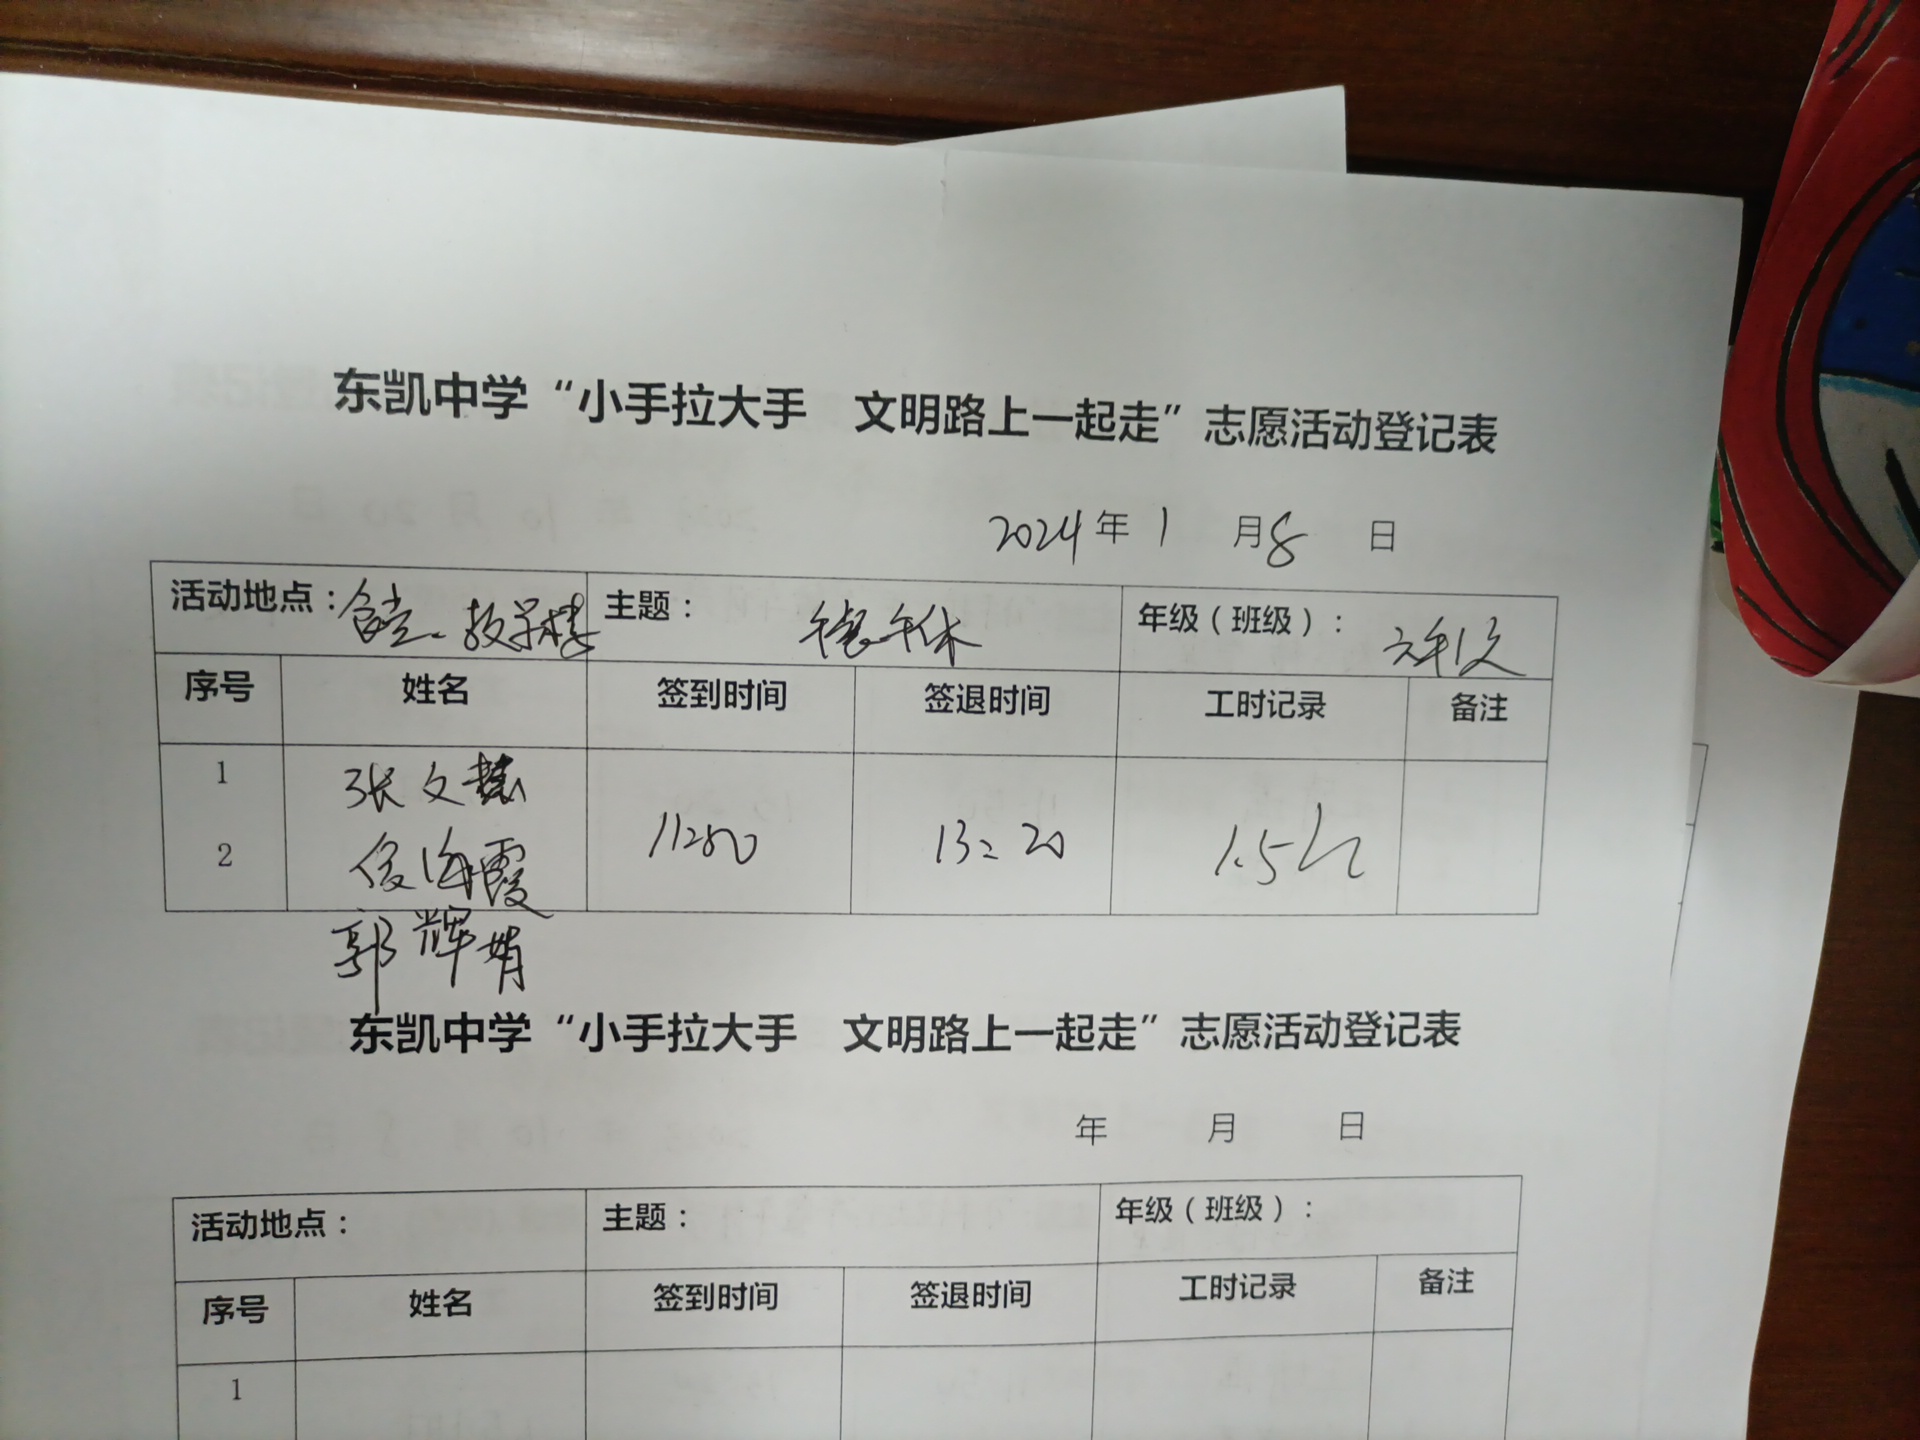 东凯中学“小手拉大手 文明路上一起走”志愿活动登记表
2024年1月8日
活动地点：食堂、教学楼 主题： 午休 年级（班级）： 六年级
序号 姓名 签到时间 签退时间 工时记录 备注
1 张文慧
2 海霞 11:50 13:20 1.5h
郭辉婧
东凯中学“小手拉大手 文明路上一起走”志愿活动登记表
年 月 日
活动地点： 主题： 年级（班级）：
序号 姓名 签到时间 签退时间 工时记录 备注
1